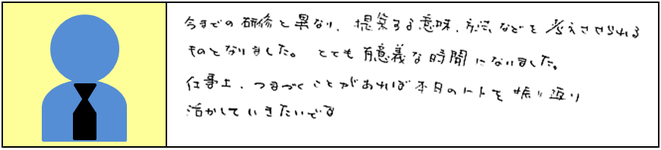 今までの研修と異なり、提案する意味、方法などを考えさせられる
ものとなりました。とても有意義な時間になりました。
仕事上、つまづくことがあれば本日のノートを振り返り
活かしていきたいです